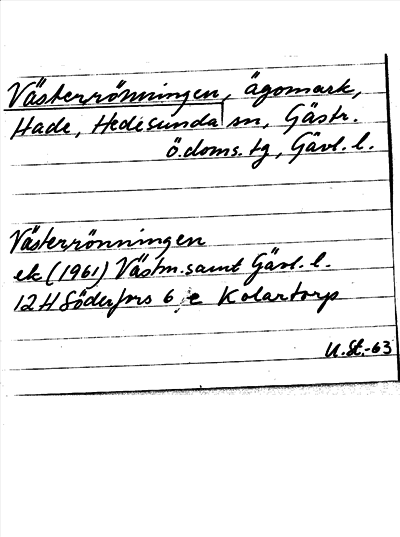 Västerrönningen, ägomark,
Hade, Hedesunda sn, Gästr.
ö.doms. tg, Gävl. l.
Västerrönningen
ek (1961) Västm. samt Gävl. l.
12H Söderfors 6 e Kolartorp
U.St.-63